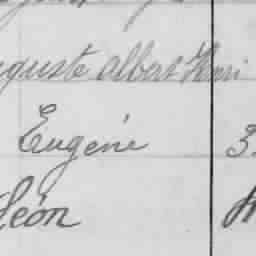 Auguste Albert Henri
Eugéne 3
Léon